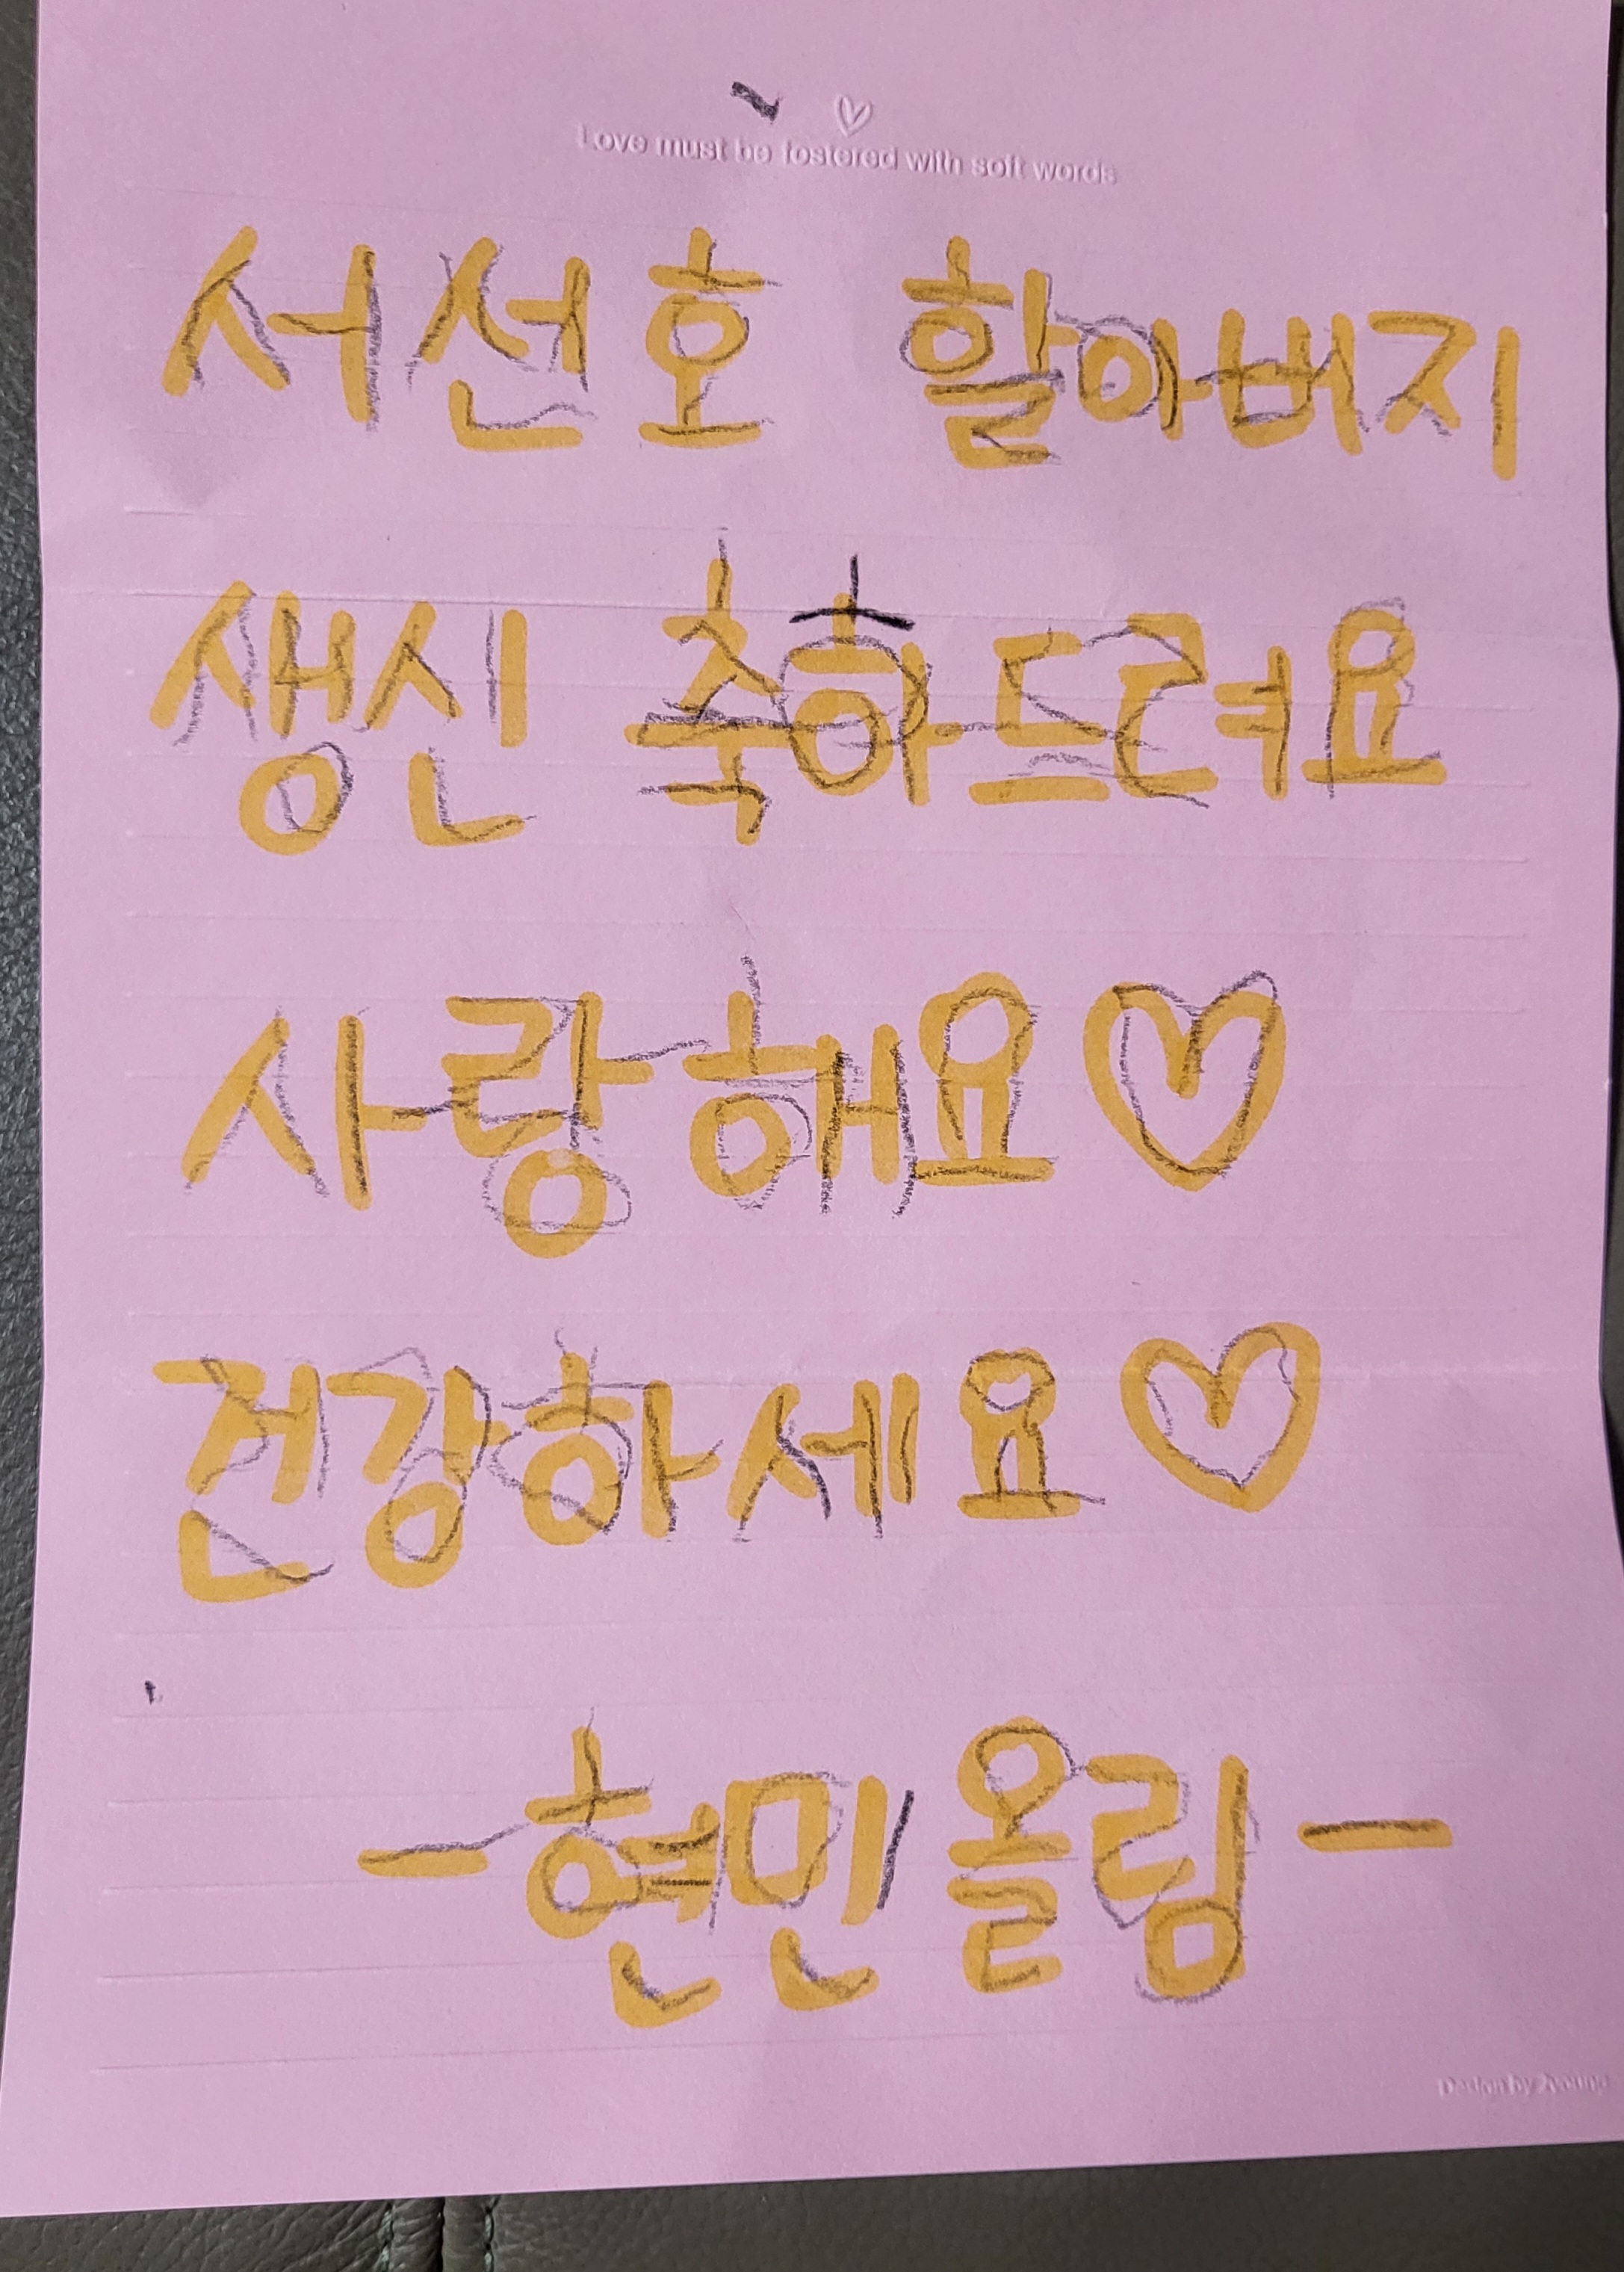 Love must be fostered with soft words
서선호 할아버지
생신 축하드려요
사랑해요♡
건강하세요♡
-현민올림-
Design by